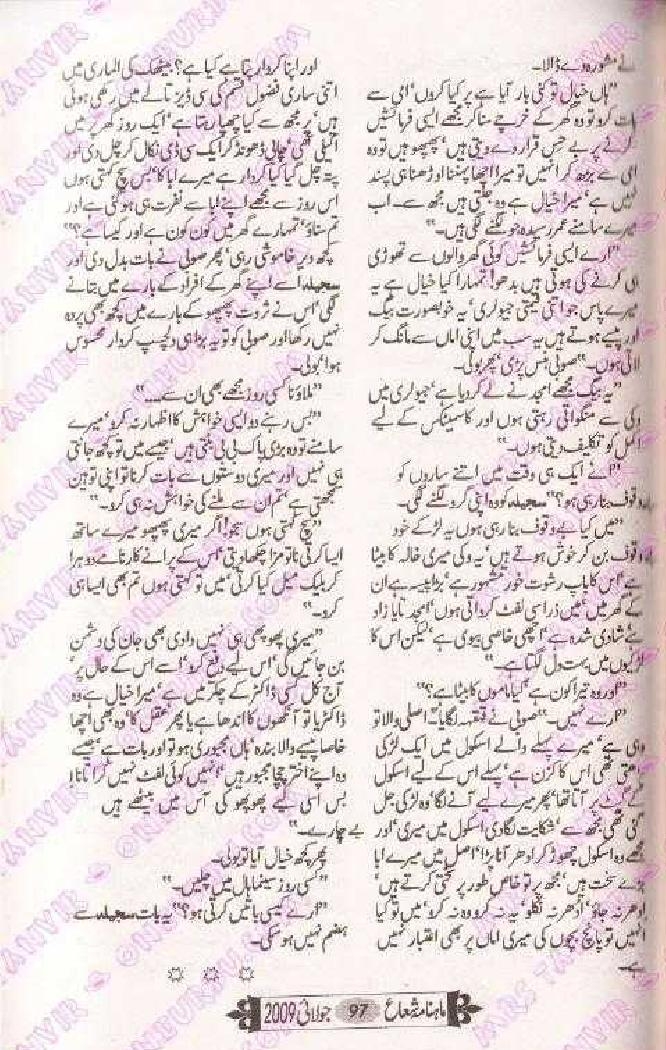 نے مشورہ دے ڈالا۔
”ہاں خیال تو کئی بار آیا ہے پر کیا کروں‘ امی سے
بات کرو تو وہ گھر کے خرچے سنا کر مجھے ایسی فرمائشیں
کرنے پر بے حس قرار دے دیتی ہیں‘ پھپھو ہیں تو وہ
امی سے بڑھ کر انہیں تو میرا اچھا پہننا اوڑھنا ہی پسند
نہیں ہے‘ میرا خیال ہے وہ جلتی ہیں مجھ سے۔ اب
میرے سامنے عمر رسیدہ جو لگنے لگی ہیں۔“
”ارے ایسی فرمائشیں کوئی گھر والوں سے تھوڑی
ای کرنے کی ہوتی ہیں بدھو! تمہارا کیا خیال ہے یہ
میرے پاس جو اتنی قیمتی جیولری‘ یہ خوبصورت بیگ
اور پیسے ہوتے ہیں یہ سب میں اپنی اماں سے مانگ کر
لاتی ہوں۔“ صوبی ہنس پڑی پھر بولی۔
”یہ بیگ مجھے امجد نے لے کر دیا ہے‘ جیولری میں
وکی سے منگواتی رہتی ہوں اور کاسمیٹکس کے لیے
اکمل کو تکلیف دیتی ہوں۔“
”اے ایک ہی وقت میں اتنے ساروں کو
بے وقوف بنا رہی ہو؟“ سجیلہ کو وہ اپنی گرو لگنے لگی۔
”میں کیا بے وقوف بنا رہی ہوں یہ لڑکے خود
بے وقوف بن کر خوش ہوتے ہیں‘ یہ وکی میری خالہ کا بیٹا
ہے‘ اس کا باپ رشوت خور مشہور ہے‘ بڑا پیسہ ہے ان
کے گھر میں‘ میں ذرا سی لفٹ کرواتی ہوں‘ امجد تایا زاد
ہے شادی شدہ ہے‘ اچھی خاصی بیوی ہے‘ لیکن اس کا
لڑکیوں میں بہت دل لگتا ہے۔“
”اور وہ تیرا کون ہے‘ کیا ماموں کا بیٹا ہے؟“
”ارے نہیں۔“ صوبی نے قہقہہ لگایا۔ ”اصلی والا تو
وہی ہے‘ میرے پہلے والے اسکول میں ایک لڑکی
پڑھتی تھی اس کا کزن ہے‘ پہلے اس کے لیے اسکول
کے گیٹ پر آتا تھا‘ پھر میرے لیے آنے لگا‘ وہ لڑکی جل
گئی تھی مجھ سے‘ شکایت لگا دی اسکول میں میری‘ اور
مجھے وہ اسکول چھوڑ کر ادھر آنا پڑا‘ اصل میں میرے ابا
بڑے سخت ہیں‘ مجھ پر تو خاص طور پر سختی کرتے ہیں‘
ادھر نہ جاؤ‘ اُدھر نہ نکلو‘ یہ نہ کرو وہ نہ کرو‘ میں تو کیا
انہیں تو پانچ بچوں کی میری اماں پر بھی اعتبار نہیں
ہے۔
اور اپنا کردار پتا ہے کیا ہے؟ بیٹھک کی الماری میں
اتنی ساری فضول قسم کی سی ڈیز تالے میں رکھی ہوئی
ہیں‘ پر مجھ سے کیا چھپا رہتا ہے‘ ایک روز گھر پر میں
اکیلی تھی‘ چابی ڈھونڈ کر ایک سی ڈی نکال کر چل دی اور
پتہ چل گیا کیا کردار ہے میرے ابا کا‘ بس سچ کہتی ہوں
اس روز سے مجھے اپنے ابا سے نفرت ہی ہو گئی ہے اور
تم سناؤ‘ تمہارے گھر میں کون کون ہے اور کیسا ہے؟“
کچھ دیر خاموشی رہی‘ پھر صوبی نے بات بدل دی اور
سجیلہ اسے اپنے گھر کے افراد کے بارے میں بتانے
لگی‘ اس نے ثروت پھپھو کے بارے میں کچھ بھی پردہ
نہیں رکھا اور صوبی کو تو یہ بڑا ہی دلچسپ کردار محسوس
ہوا‘ بولی۔
”ملاؤ نا کسی روز مجھے بھی ان سے....“
”بس رہنے دو ایسی خواہش کا اظہار نہ کرو‘ میرے
سامنے تو وہ بڑی پاک بی بی بنتی ہیں‘ جیسے میں تو کچھ جانتی
ہی نہیں اور میری دوستوں سے بات کرنا تو اپنی توہین
سمجھتی ہے ہم ان سے ملنے کی خواہش نہ ہی کرو۔“
”سچ کہتی ہوں سجو! اگر میری پھپھو میرے ساتھ
ایسا کرتی نا تو مزا چکھا دیتی‘ اس کے پرانے کارنامے دوہرا
کر بلیک میل کیا کرتی‘ میں تو کہتی ہوں تم بھی ایسا ہی
کرو۔“
”میری پھوپھی ہی نہیں دادی بھی جان کی دشمن
بن جائیں گی‘ اس لیے دفع کرو‘ اسے اس کے حال پر‘
آج کل کسی ڈاکٹر کے چکر میں ہے‘ میرا خیال ہے وہ
ڈاکٹر یا تو آنکھوں کا اندھا ہے یا پھر عقل کا‘ وہ بھی اچھا
خاصا پیسے والا بندہ‘ ہاں مجبوری ہو تو اور بات ہے‘ جیسے
وہ اپنے اختر چچا مجبور ہیں‘ انہیں کوئی لفٹ نہیں کراتا نا!
بس اسی لیے پھوپھو کی آس میں بیٹھے ہیں
بے چارے۔“
پھر کچھ خیال آیا تو بولی۔
”کسی روز سینما ہال میں چلیں۔“
”ارے کیسی باتیں کرتی ہو؟“ یہ بات سجیلہ سے
ہضم نہیں ہو سکی۔
ماہنامہ شعاع 97 جولائی 2009